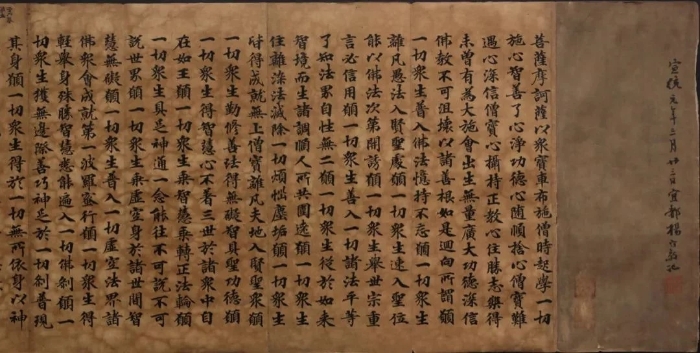 宣統元年二月廿二日宜都楊守敬記
菩薩摩訶薩以眾寶車布施僧時起學一切
施心智善了心淨功德心随順捨心僧寶難
遇心深信僧寶心攝持正教心住勝志樂得
未曾有為大施會出生無量廣大功德深信
佛教不可沮壞以諸善根如是迴向所謂願
一切眾生普入佛法憶持不忘願一切眾生
離凡愚法入賢聖處願一切眾生速入聖位
能以佛法次第開誘願一切眾生舉世宗重
言必信用願一切眾生善入一切諸法平等
了知法界自性無二願一切眾生從於如來
智境而生諸調順人所共圍遶願一切眾生
住離染法滅除一切煩惱塵垢願一切眾生
皆得成就無上僧寶離凡夫地入賢聖眾願
一切眾生勤修善法得無礙智具聖功德願
一切眾生得智慧心不著三世於諸眾中自
在如王願一切眾生乘智慧乘轉正法輪願
一切眾生具足神通一念能往不可說不可
說世界願一切眾生乘虛空身於諸世間智
慧無礙願一切眾生普入一切虛空法界諸
佛眾會成就第一波羅蜜行願一切眾生得
輕舉身殊勝智慧悉能遍入一切佛剎願一
切眾生獲無邊際善巧神足於一切剎普現
其身願一切眾生得於一切無所依身以神